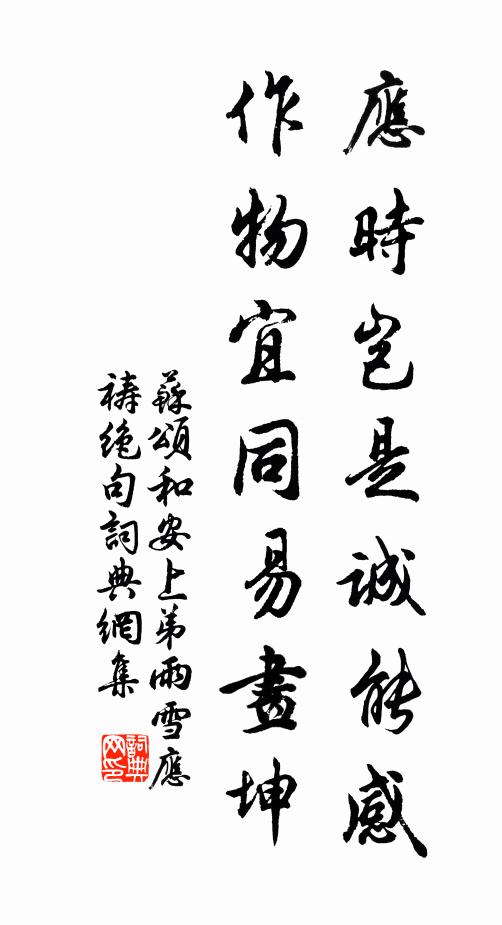 應時豈是誠能感
作物宜同易畫坤
蘇頌和安上弟雨雪應
禱絕句詞典網集
詞典網印